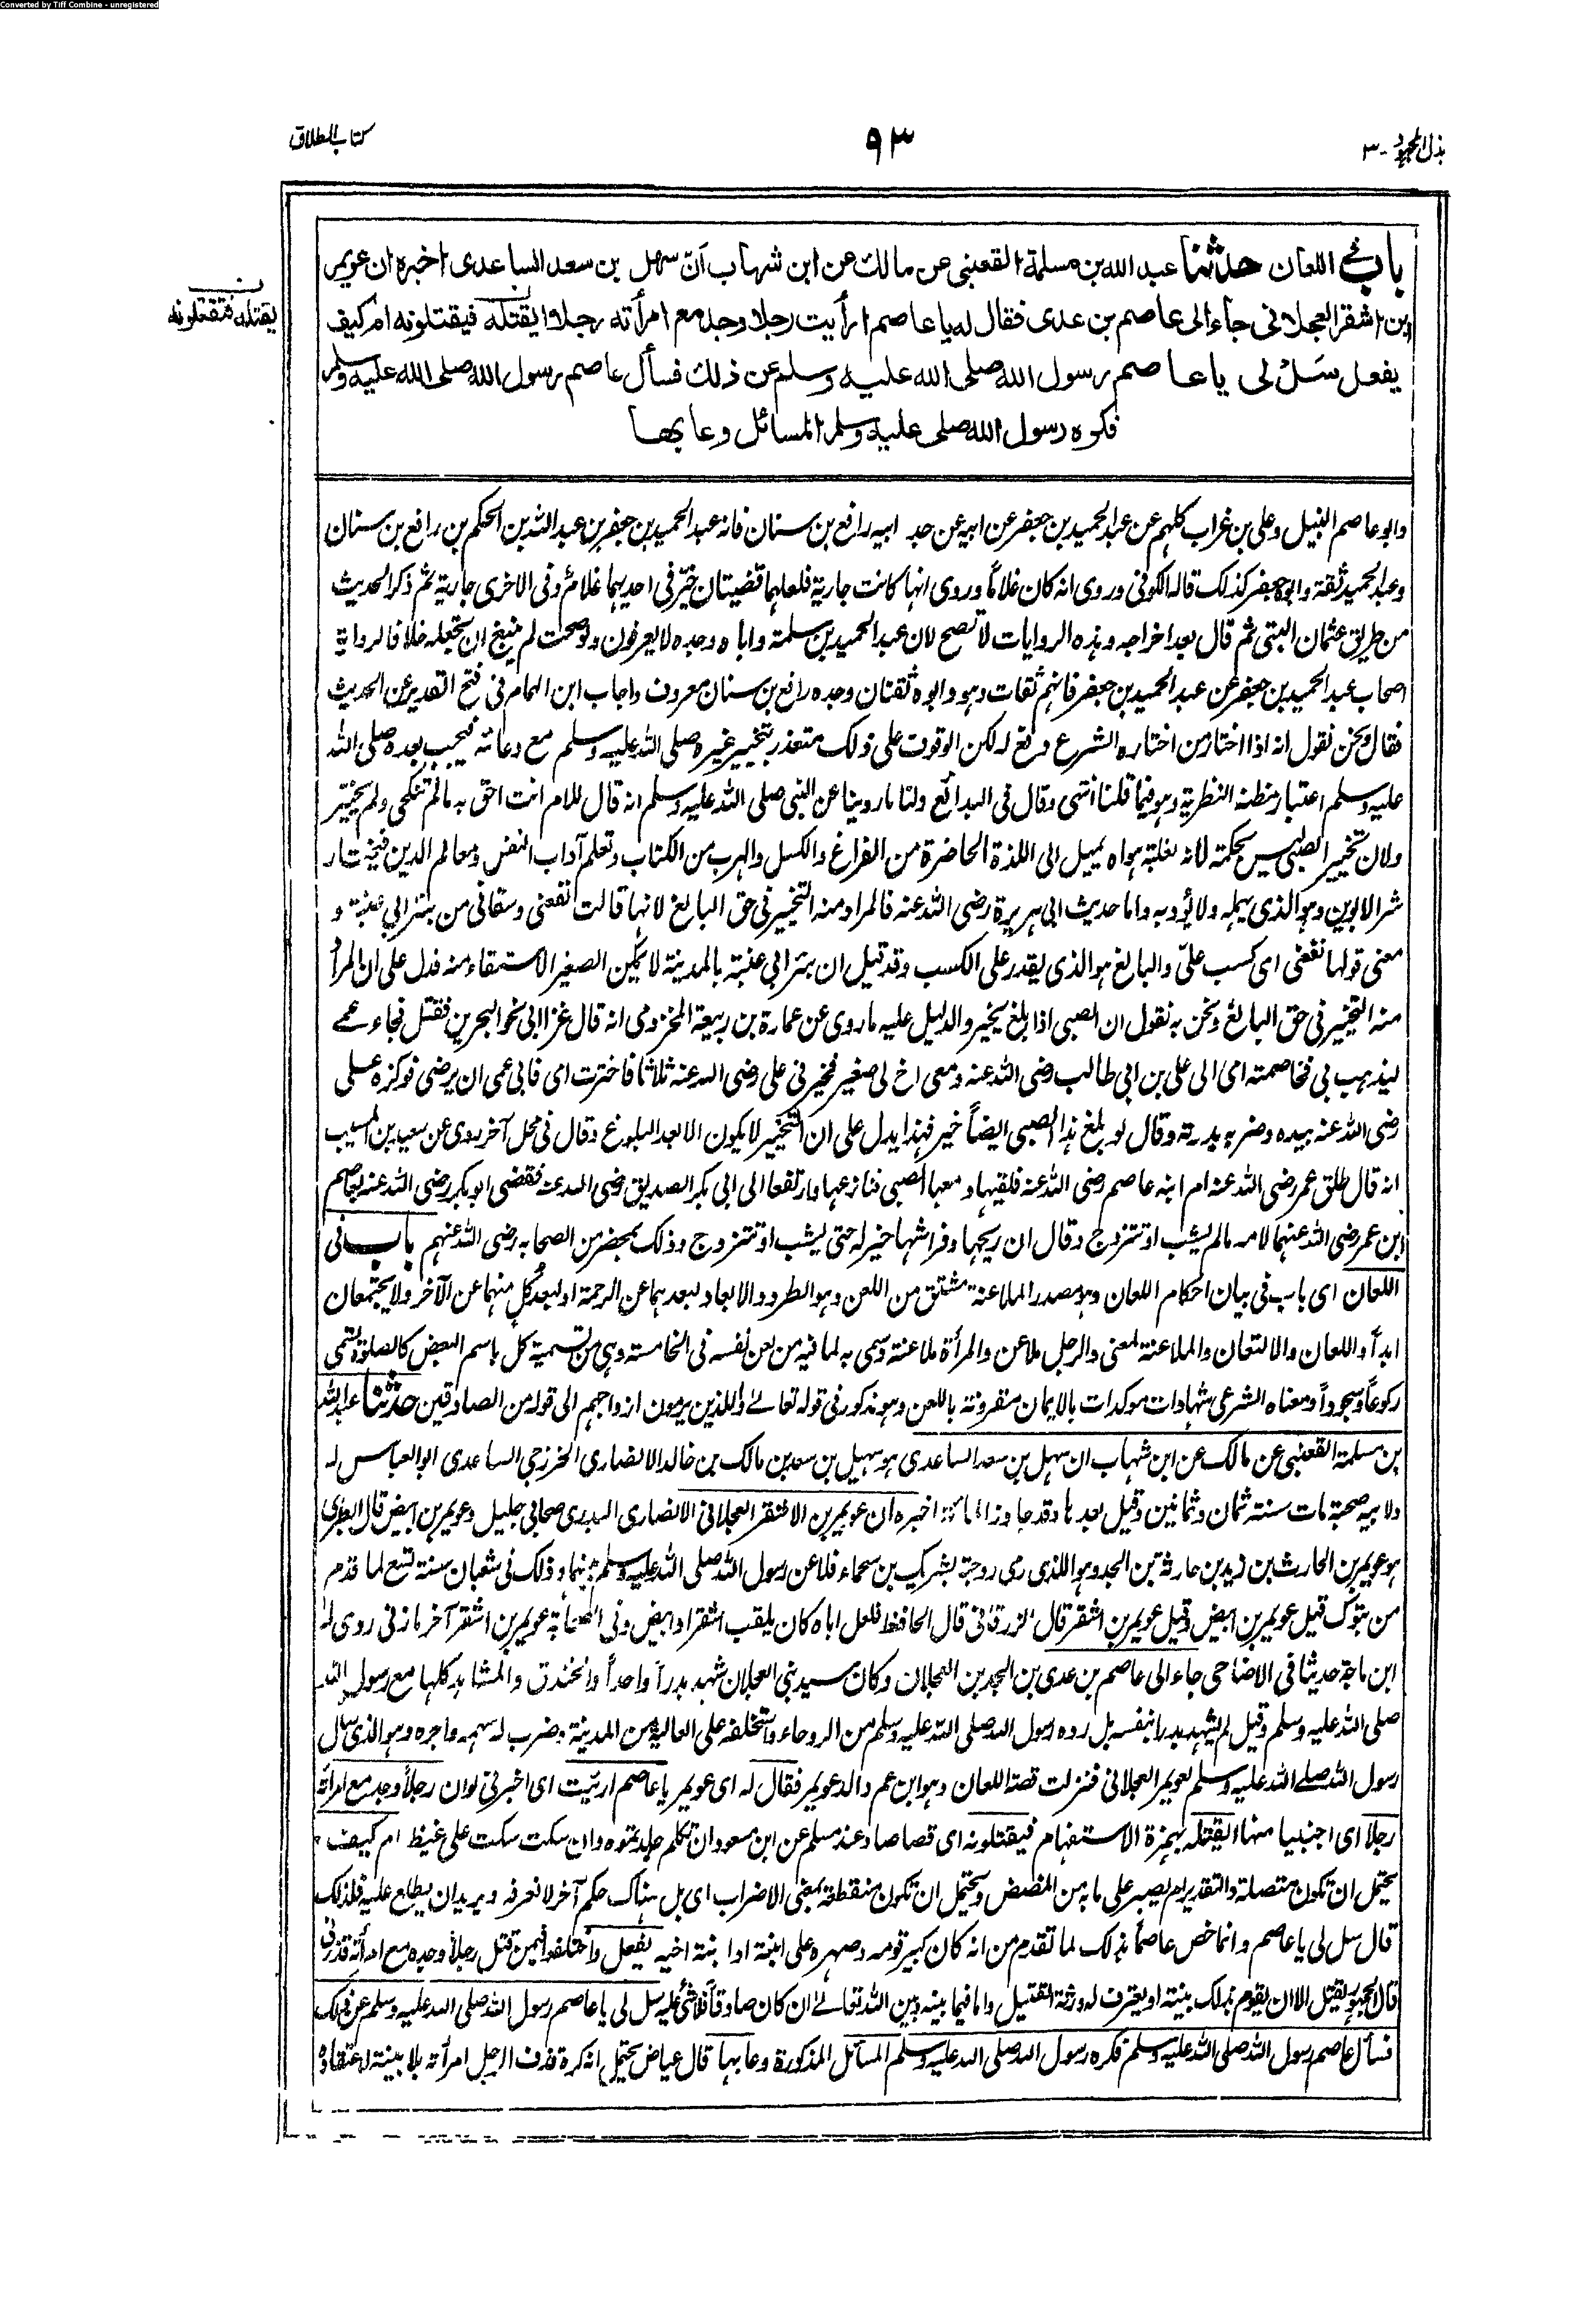 Converted by Tiff Combine - unregistered
بذل المجهود - ٣
٩٣
كتاب الطلاق
باب في اللعان حدثنا عبد الله بن مسلمة القعنبي عن مالك عن ابن شهاب أن سهل بن سعد الساعدي اخبره ان عويمر
بن اشقر العجلاني جاء الى عاصم بن عدى فقال له يا عاصم ارأيت رجلا وجد مع امرأته رجلا ايقتله فيقتلونه ام كيف
يفعل سَلْ لي يا عاصم رسول الله صلى الله عليه وسلم عن ذلك فسأل عاصم رسول الله صلى الله عليه وسلم
فكره رسول الله صلى عليه وسلم المسائل وعابها
يقتله فتقتلونه
وابو عاصم النبيل وعلي بن غراب كلهم عن عبد الحميد بن جعفر عن ابيه عن جد ابيه رافع بن سنان فانه عبد الحميد بن جعفر بن عبد الله بن الحكم بن رافع بن سنان
وعبد الحميد ثقة وابوه جعفر كذلك قاله الكوفي وروى انه كان غلاماً وروى انها كانت جارية فلعلهما قضيتان خيّر في احديهما غلام وفي الاخرى جارية ثم ذكر الحديث
من طريق عثمان البتي ثم قال بعد اخراجه وهذه الروايات لا تصح لان عبد الحميد بن سلمة واباه وجده لا يعرفون ولو صحت لم ينبغ ان تجعله خلافا لرواية
اصحاب عبد الحميد بن جعفر عن عبد الحميد بن جعفر فانهم ثقات وهو وابوه ثقتان وجده رافع بن سنان معروف واجاب ابن الهمام في فتح القدير عن الحديث
فقال ونحن نقول انه اذا اختار من اختاره الشرع دفع له لكن الوقوف على ذلك متعذر بتخيير غيره صلى الله عليه وسلم مع دعائه فيجب بعده صلى الله
عليه وسلم اعتبار مظنة النظرية وهو فيما قلنا انتهى وقال في البدائع ولنا ما روينا عن النبي صلى الله عليه وسلم انه قال للام انت احق به ما لم تنكحي ولم يخير
ولان تخيير الصبي ليس بحكمة لأنه لغلبة هواه يميل الى اللذة الحاضرة من الفراغ والكسل والهرب من الكتاب وتعلم آداب النفس ومعالم الدين فيختار
شر الابوين وهو الذي يهمله ولا يؤدبه واما حديث ابي هريرة رضى الله عنه فالمراد منه التخيير في حق البالغ لانها قالت نفعني وسقاني من بئر ابي عنبة و
معنى قولها نفعني اى كسب عليّ والبالغ هو الذي يقدر على الكسب وقد قيل ان بئر ابي عنبة بالمدينة لا يمكن الصغير الاستقاء منه فدل على ان المراد
منه التخيير في حق البالغ ونحن به نقول ان الصبي اذا بلغ يخير والدليل عليه ما روى عن عمارة بن ربيعة المخزومي انه قال غزا ابي نحو البحرين فقتل فجاء عمي
ليذهب بي فخاصمته امي الى علي بن ابي طالب رضى الله عنه ومعى اخ لي صغير فخيرني علي رضى الله عنه ثلاثا فاخترت امي فابى عمي ان يرضى فوكزه علي
رضى الله عنه بيده وضربه بدرته وقال لو بلغ هذا الصبي ايضاً خير فهذا يدل على ان التخيير لا يكون الا بعد البلوغ وقال في محل آخر روى عن سعيد بن المسيب
انه قال طلق عمر رضى الله عنه ام ابنه عاصم رضى الله عنه فلقيها ومعها الصبي فنازعها وارتفعا الى ابي بكر الصديق رضى الله عنه فقضى ابو بكر رضى الله عنه بعاصم
ابن عمر رضى الله عنهما لامه مالم يشب او تتزوج وقال ان ريحها وفراشها خير له حتى يشب او تتزوج وذلك بمحضر من الصحابه رضى الله عنهم باب في
اللعان اى باب في بيان احكام اللعان وهو مصدر الملاعنة مشتق من اللعن وهو الطرد والابعاد لبعدهما عن الرحمة او لبعد كل منهما عن الآخر ولا يجتمعان
ابداً واللعان والالتعان والملاعنة بمعنى والرجل ملاعن والمرأة ملاعنة وسمى به لما فيه من لعن نفسه في الخامسة وهي من تسمية كل باسم البعض كالصلوة تسمى
ركوعاً وسجوداً ومعناه الشرعي شهادات موكدات بالايمان مقرونة باللعن وهو مذكور في قوله تعالى والذين يرمون ازواجهم الى قوله من الصادقين حدثنا عبد الله
بن مسلمة القعنبي عن مالك عن ابن شهاب ان سهل بن سعد الساعدي هو سهل بن سعد بن مالك بن خالد الانصاري الخزرجي الساعدي ابو العباس له
ولابيه صحبة مات سنة ثمان وثمانين وقيل بعدها وقد جاوز المائة اخبره ان عويمر بن الاشقر العجلاني الانصاري البدري صحابي جليل وعويمر بن ابيض قال الطبري
هو عويمر بن الحارث بن زيد بن حارثة بن الجد وهو الذي رمى زوجته بشريك بن سحماء فلاعن رسول الله صلى الله عليه وسلم بينهما وذلك في شعبان سنة تسع لما قدم
من تبوك قيل عويمر بن ابيض وقيل عويمر بن اشقر قال الزرقاني قال الحافظ فلعل اباه كان يلقب اشقر او ابيض وفي الصحابة عويمر بن اشقر آخر مازني روى له
ابن ماجة حديثا في الاضاحي جاء الى عاصم بن عدي بن الجد بن العجلان وكان سيد بني العجلان شهد بدراً واحداً والخندق والمشاهد كلها مع رسول الله
صلى الله عليه وسلم وقيل لم يشهد بدرا بنفسه بل رده رسول الله صلى الله عليه وسلم من الروحاء واستخلفه على العالية من المدينة وضرب له سهمه واجره وهو الذي سأل
رسول الله صلى الله عليه وسلم لعويمر العجلاني فنزلت قصة اللعان وهو ابن عم والد عويمر فقال له اى عويمر يا عاصم ارئيت اى اخبرني لو ان رجلاً وجد مع امرأته
رجلا اى اجنبيا منها ايقتله بهمزة الاستفهام فيقتلونه اى قصاصا وعند مسلم عن ابن مسعود ان تكلم جلدتموه وان سكت سكت على غيظ ام كيف
يحتمل ان تكون متصلة والتقدير ام يصبر على ما به من المضض ويحتمل ان تكون منقطعة بمعنى الاضراب اى بل هناك حكم آخر لا نعرفه ويريد ان يطلع عليه فلذلك
قال سل لي يا عاصم وانما خص عاصماً بذلك لما تقدم من انه كان كبير قومه وصهره على ابنته او ابنة اخيه يفعل واختلفوا فيمن قتل رجلاً وجده مع امرأته قد زنى
قال الجمهور يقتل الا ان يقوم بذلك بينة او يعترف له ورثة القتيل واما فيما بينه وبين الله تعالى ان كان صادقاً فلا شئ عليه سل لي يا عاصم رسول الله صلى الله عليه وسلم عن ذلك
فسأل عاصم رسول الله صلى الله عليه وسلم فكره رسول الله صلى الله عليه وسلم المسائل المذكورة وعابها قال عياض يحتمل انه كره قذف الرجل امرأته بلا بينة لاعتقاده